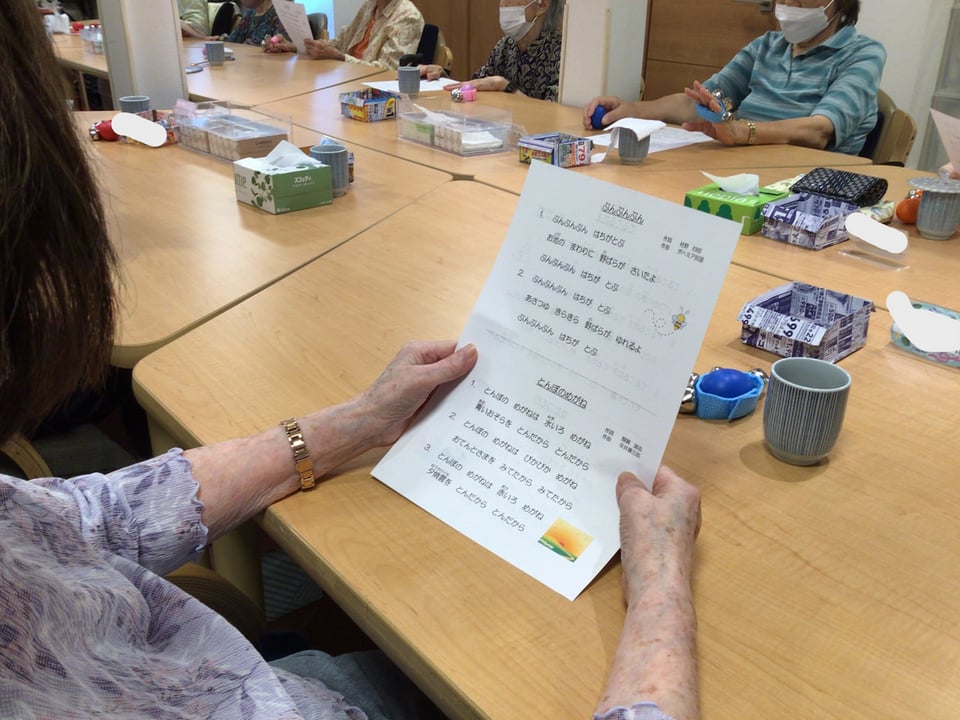 ぶんぶんぶん
1. ぶんぶんぶん はちがとぶ
お池の まわりに 野ばらが さいたよ
ぶんぶんぶん はちが とぶ
2. ぶんぶんぶん はちが とぶ
あさつゆ きらきら 野ばらが ゆれるよ
ぶんぶんぶん はちが とぶ
作詞 村野 四郎
作曲 ボヘミア民謡
とんぼのめがね
1. とんぼの めがねは 水いろ めがね
青いおそらを とんだから とんだから
2. とんぼの めがねは ぴかぴか めがね
おてんとさまを みてたから みてたから
3. とんぼの めがねは 赤いろ めがね
夕焼雲を とんだから とんだから
スコッティ